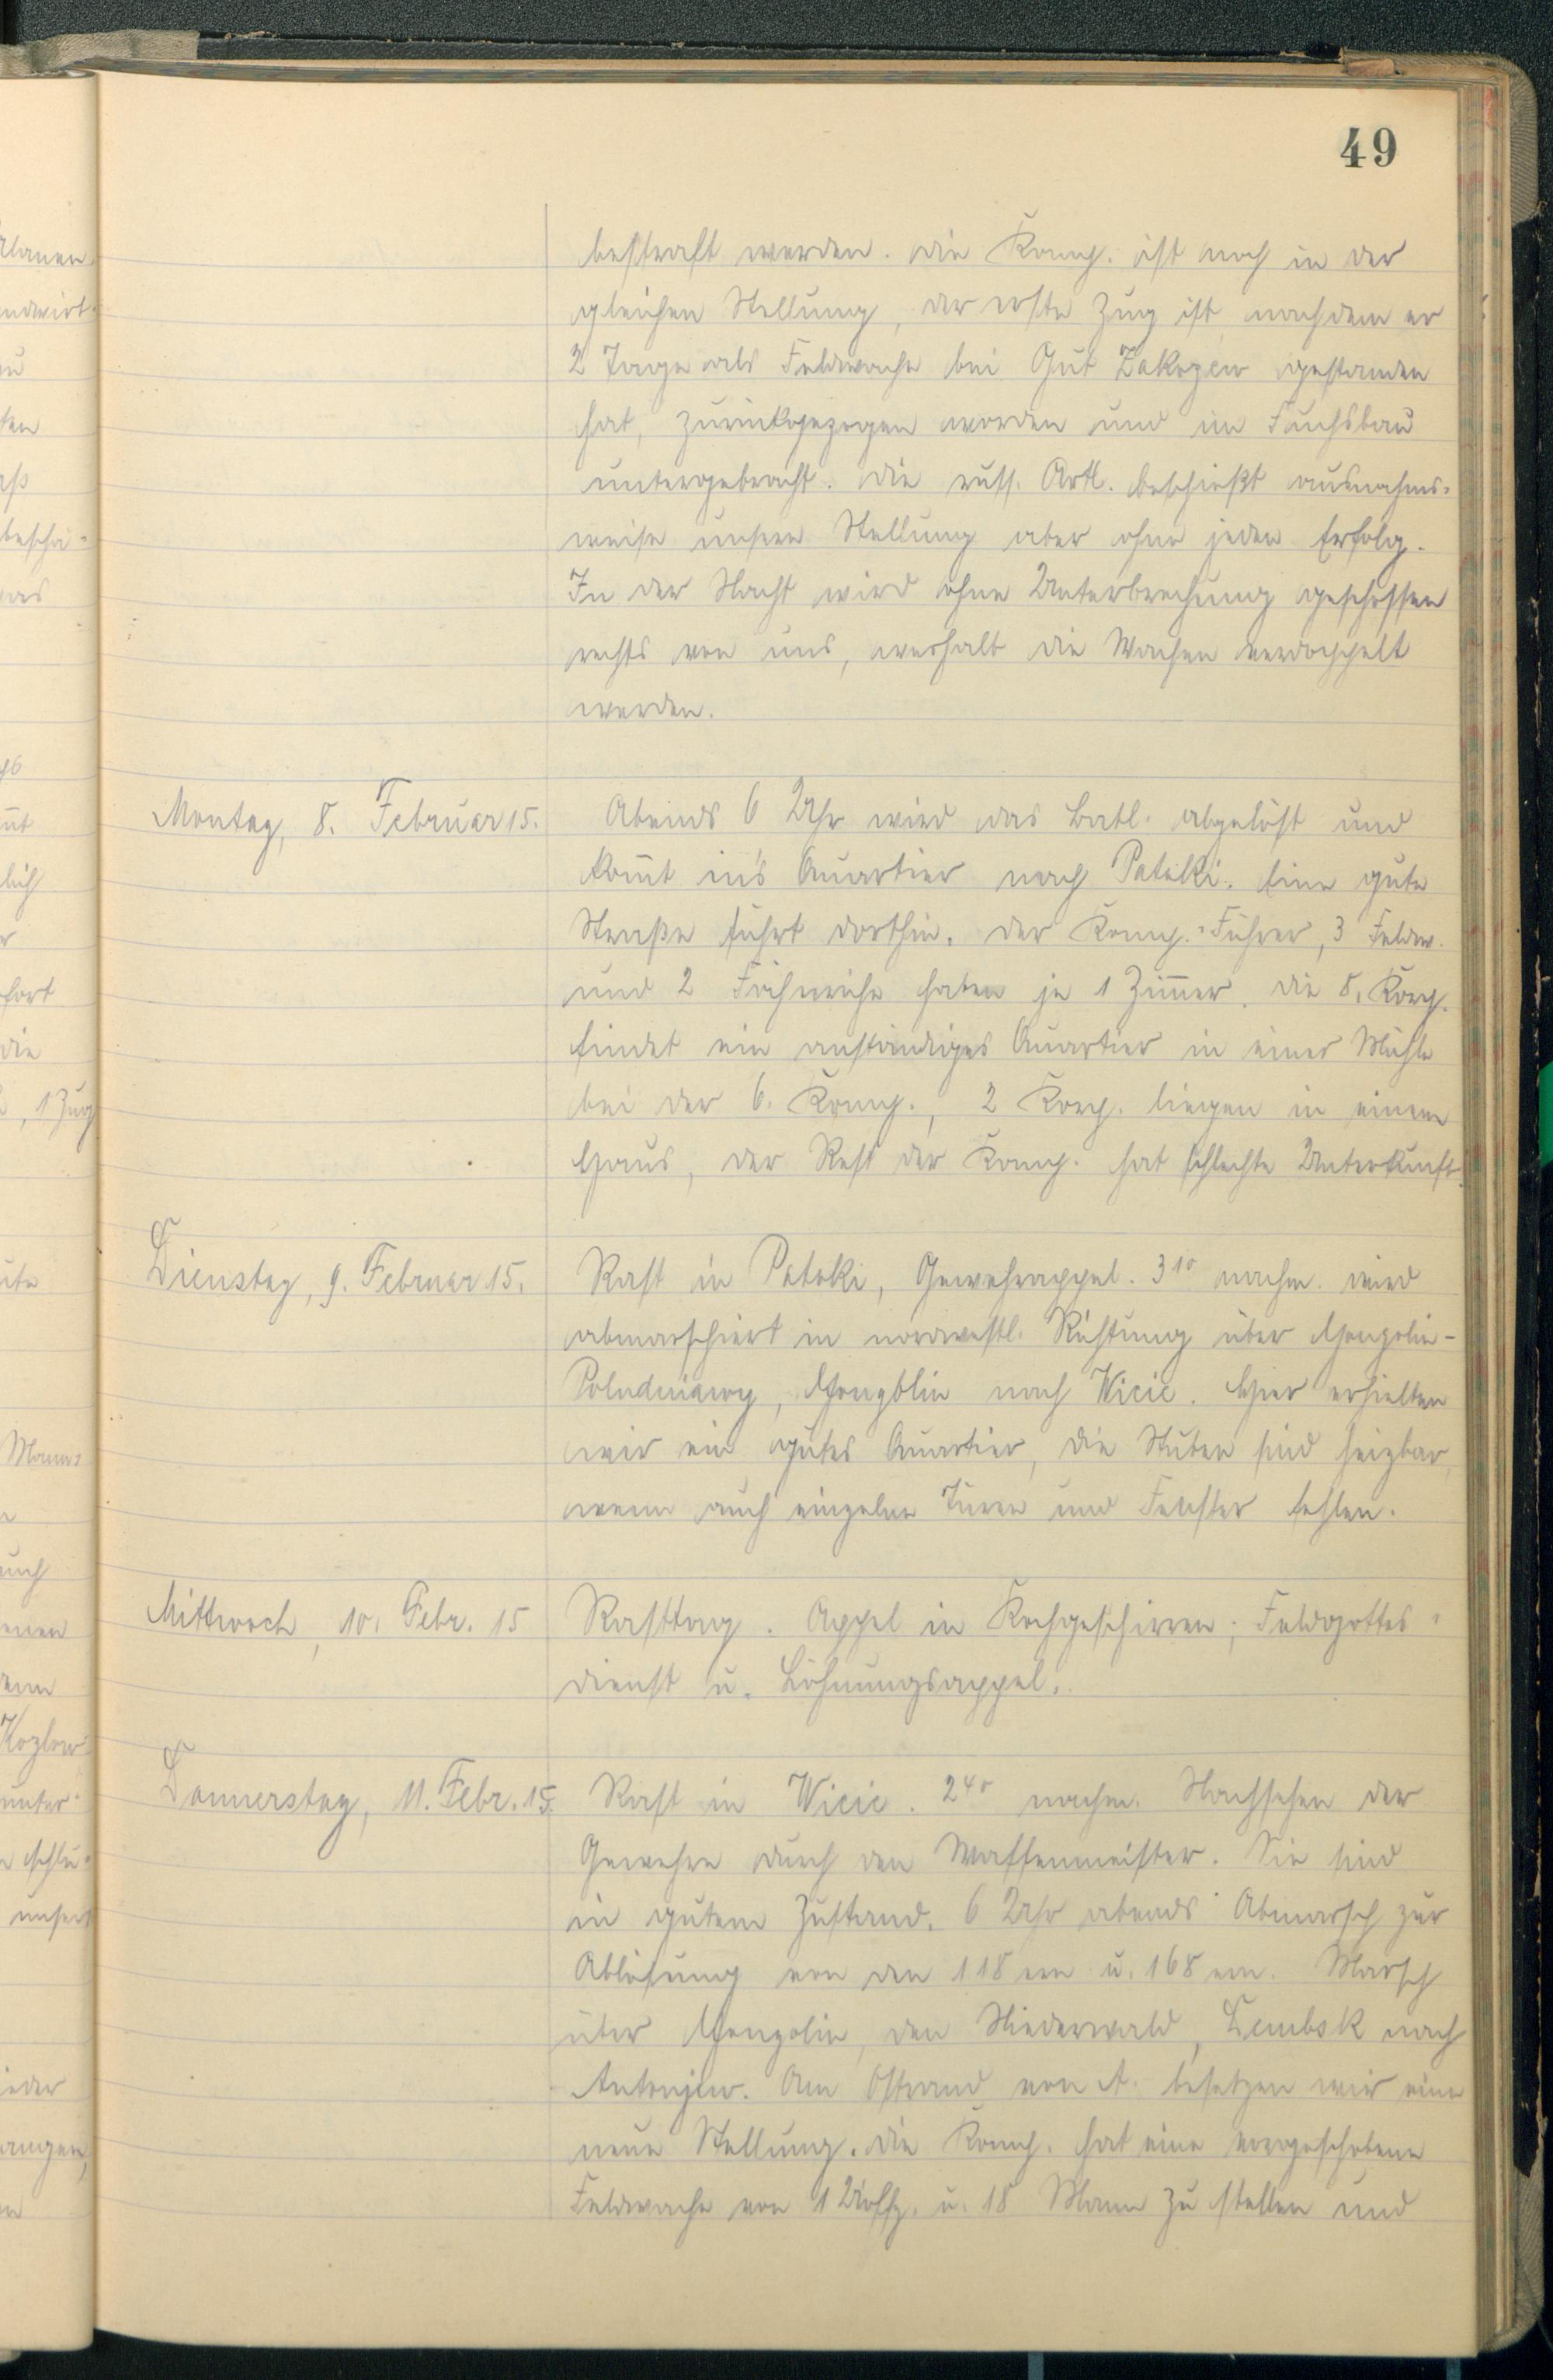 49
bestraft werden. Die Komp. ist noch in der
gleichen Stellung, der erste Zug ist nachdem er
2 Tage als Feldwache bei Gut Zakrzew gestanden
hat, zurückgezogen worden und im Fuchsbau
untergebracht. Die russ. Artl. beschießt ausnahms-
weise unsere Stellung aber ohne jeden Erfolg.
In der Nacht wird ohne Unterbrechung geschossen
rechts von uns, weshalb die Wachen verdoppelt
werden.
Montag, 8. Februar 15. Abends 6 Uhr wird das Batl. abgelöst und
kom̅t in's Quartier nach Potoki. Eine gute
Straße führt dorthin. Der Komp.-Führer, 3 Feldw.
und 2 Fähnriche haben je 1 Zim̅er. Die 8. Korp.
findet ein anständiges Quartier in einer Mühle
bei der 6. Komp., 2 Korp. liegen in einem
Haus, der Rest der Komp. hat schlechte Unterkunft.
Dienstag, 9. Februar 15. Rast in Potoki, Gewehrappel. 3¹⁰ nachm. wird
abmarschiert in nordwestl. Richtung über
nach Wicie. Hier erhielten
wir ein gutes Quartier, die Stuben sind heizbar,
wenn auch einzelne Türen und Fenster fehlen.
Mittwoch, 10. Febr. 15 Rasttag. Appel in Kochgeschirren; Feldgottes-
dienst u. Löhnungsappel.
Donnerstag, 11. Febr. 15. Rast in Wicie. 2⁴⁰ nachm. Nachsehen der
Gewehre durch den Waffenmeister. Sie sind
in gutem Zustand. 6 Uhr abends Abmarsch zur
Ablösung von den 118ern u. 168ern. Marsch
über den Niederwald, nach
Antonjew. Am Ostrand von A. besetzen wir eine
neue Stellung. Die Komp. hat eine vorgeschobene
Feldwache von 1 Uoffz. u. 18 Mann zu stellen und